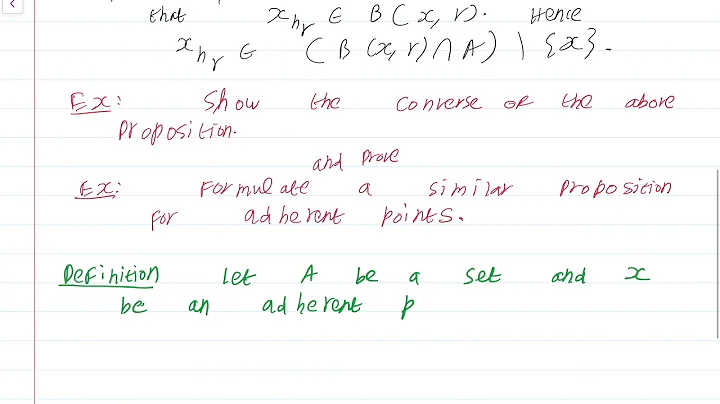 that x_{n_r} ∈ B(x, r). Hence
x_{n_r} ∈ (B(x, r) ∩ A) \ {x}.
Ex: Show the converse of the above
proposition.
and prove
Ex: Formulate a similar proposition
for adherent points.
Definition Let A be a set and x
be an adherent p